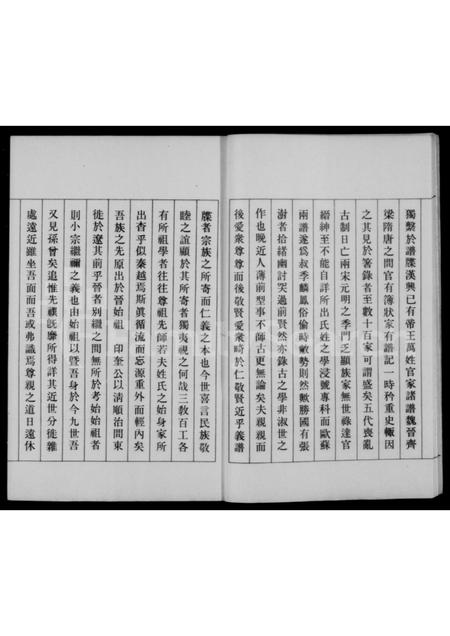 獨繫於譜牒漢興已有帝王萬姓官家諸譜魏晉齊
梁隋唐之間官有簿狀家有譜記一時矜重史輒因
之其見於箸錄者至數十百家可謂盛矣五代喪亂
古制日亡兩宋元明之季門乏顯族家無世祿達官
縉紳至不能自詳所出氏姓之學浸號專科而歐蘇
兩譜遂爲叔季麟鳳俗偷時敝勢則然歟勝國有張
澍者拾緒幽討突過前賢然亦錄古之學非淑世之
作也晚近人薄前型事不師古更無論矣夫親親而
後愛衆尊尊而後敬賢愛衆畸於仁敬賢近乎義譜
牒者宗族之所寄而仁義之本也今世喜言民族敬
睦之誼顧於其所寄者獨夷視之何哉三敎百工各
有所祖學者往往尊祖先師若夫姓氏之始身家所
出杳乎似秦越焉斯眞循流而忘源重外而輕內矣
吾族之先原出於晉始祖 印奎公以淸順治間東
徙於遼其前乎晉者別繼之間無所於考始始祖者
則小宗繼禰之義也由始祖以曁吾身於今九世吾
又見孫曾矣追惟先
旣靡所得詳其近世分徙雜
處遠近雖坐吾面而吾或弗識焉尊親之道日遠休